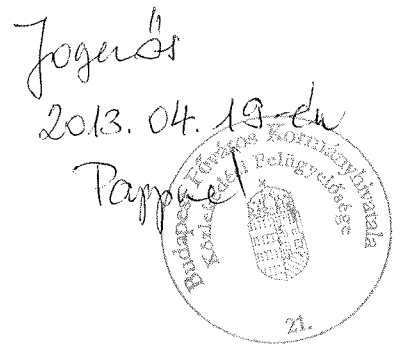 Jogerős
2013. 04. 19-én
Pappné
Budapest Főváros Kormányhivatala
Közlekedési Felügyelősége
21.